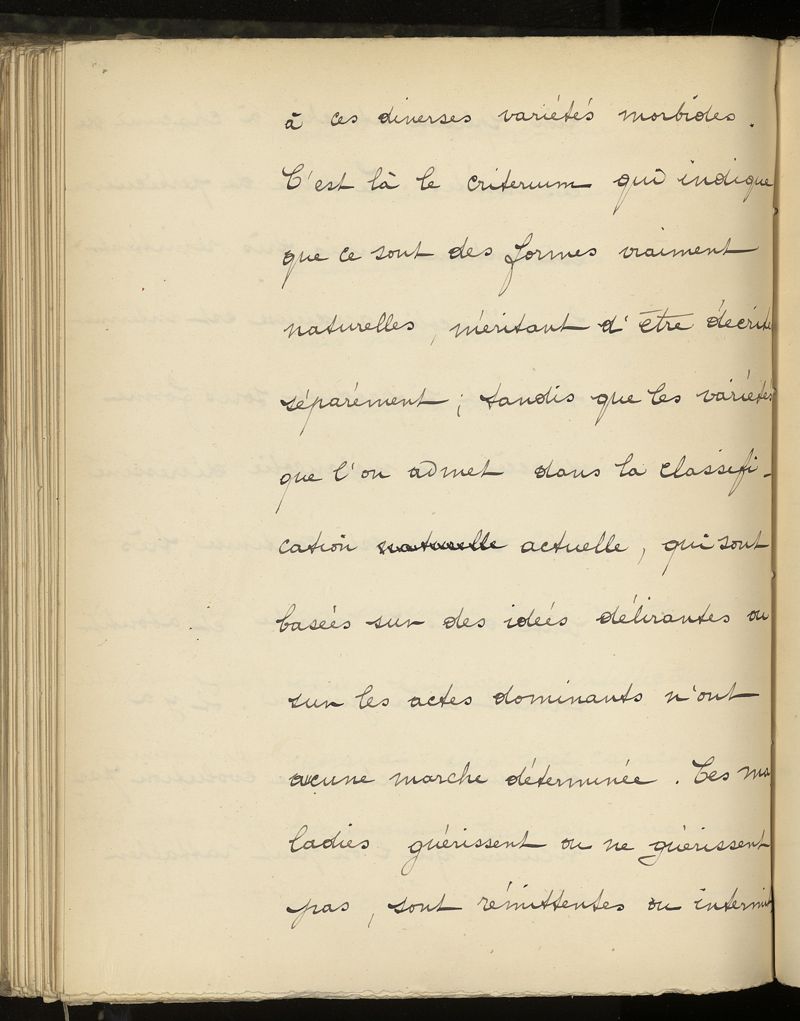 à ces diverses variétés morbides.
C'est là le criterium qui indique
que ce sont des formes vraiment
naturelles, méritant d'être décrite
séparément ; tandis que les variétés
que l'on admet dans la classifi-
cation naturelle actuelle, qui sont
basées sur des idées délirantes ou
sur les actes dominants n'ont
aucune marche déterminée. Ces ma
ladies guérissent ou ne guérissent
pas, sont rémittentes ou intermit